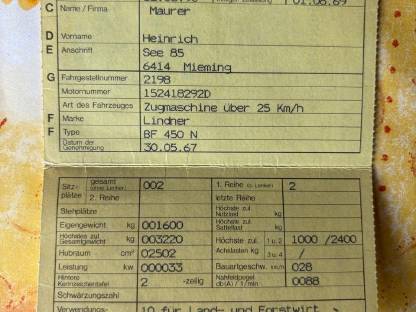 C Name / Firma Maurer 01.08.69
D Vorname Heinrich
E Anschrift See 85
6414 Mieming
G Fahrgestellnummer 2198
Motornummer 152418292D
Art des Fahrzeuges Zugmaschine über 25 Km/h
F Marke Lindner
F Type BF 450 N
Datum der Genehmigung 30.05.67
Sitzplätze gesamt (ohne Lenker) 002 1. Reihe (o. Lenker) 2
2. Reihe letzte Reihe
Stehplätze Höchste zul. Nutzlast kg
Eigengewicht kg 001600 Höchste zul. Sattellast kg
Höchstes zul. Gesamtgewicht kg 003220 Höchste zul. 1 u. 2 1000 /2400
Hubraum cm³ 02502 Achslasten kg 3 u. 4 /
Leistung kW 000033 Bauartgeschw. km/h 028
Hintere Kennzeichentafel 2 -zeilig Nahfeldpegel db(A) / 1/min 0088
Schwärzungszahl
Verwendungs- 10 für Land- und Forstwirt